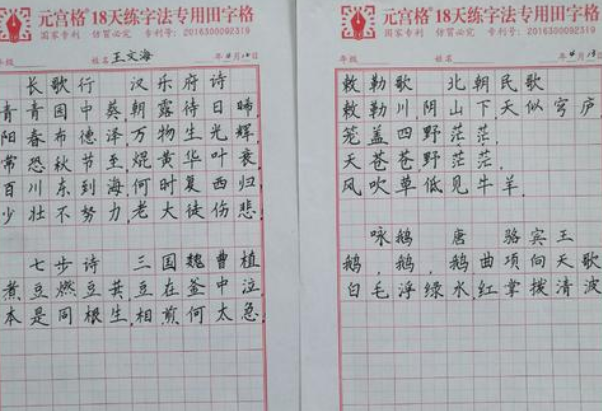 元宫格® 18天练字法专用田字格
国家专利 仿冒必究 专利号: 2016300092319
年级 姓名 王文海 年 月 日
长歌行 汉乐府诗
青青园中葵,朝露待日晞,
阳春布德泽,万物生光辉,
常恐秋节至,焜黄华叶衰
百川东到海,何时复西归
少壮不努力,老大徒伤悲
七步诗 三国魏曹植
煮豆燃豆萁,豆在釜中泣
本是同根生,相煎何太急,
元宫格® 18天练字法专用田字格
国家专利 仿冒必究 专利号: 2016300092319
年级 姓名 年 月
敕勒歌 北朝民歌
敕勒川,阴山下,天似穹庐,
笼盖四野茫茫,
天苍苍野茫茫,
风吹草低见牛羊,
咏鹅 唐 骆宾王
鹅,鹅,鹅曲项向天歌
白毛浮绿水,红掌拨清波